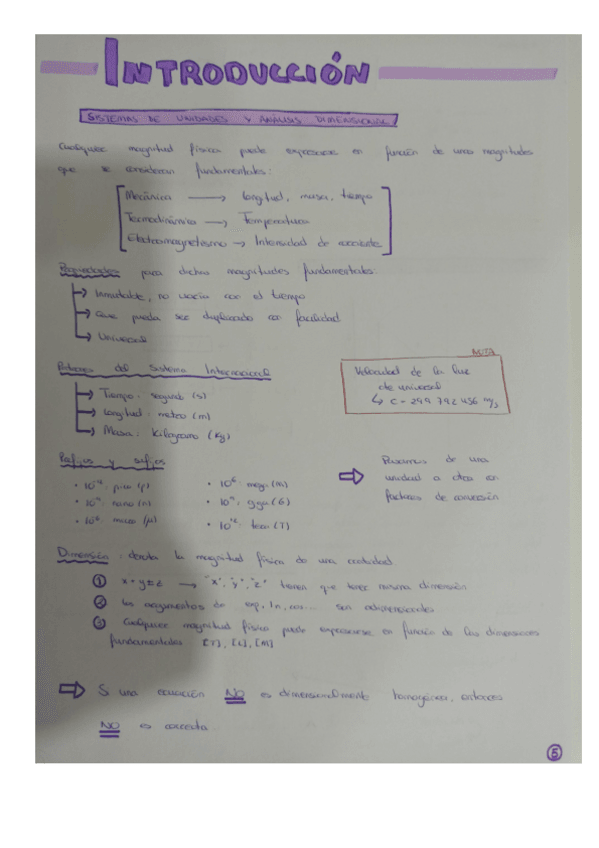 INTRODUCCIÓN
SISTEMAS DE UNIDADES Y ANÁLISIS DIMENSIONAL
Cualquier magnitud física puede expresarse en función de unas magnitudes
que se consideran fundamentales:
Mecánica → longitud, masa, tiempo
Termodinámica → Temperatura
Electromagnetismo → Intensidad de corriente
Propiedades para dichas magnitudes fundamentales:
→ Inmutable, no varía con el tiempo
→ Que pueda ser duplicado con facilidad
→ Universal
Patrones del Sistema Internacional
→ Tiempo: segundo (s)
→ Longitud: metro (m)
→ Masa: Kilogramo (Kg)
NOTA
Velocidad de la luz
cte universal
↳ c = 299 792 456 m/s
Prefijos y sufijos
• 10⁻¹²: pico (p)
• 10⁻⁹: nano (n)
• 10⁻⁶: micro (μ)
• 10⁶: mega (M)
• 10⁹: giga (G)
• 10¹²: tera (T)
⇒ Pasamos de una
unidad a otra con
factores de conversión
Dimensión: denota la magnitud física de una cantidad
① x = y ± z → "x", "y", "z" tienen que tener misma dimensión
② Los argumentos de exp, ln, cos... son adimensionales
③ Cualquier magnitud física puede expresarse en función de las dimensiones
fundamentales [T], [L], [M]
⇒ Si una ecuación NO es dimensionalmente homogénea, entonces
NO es correcta.
5